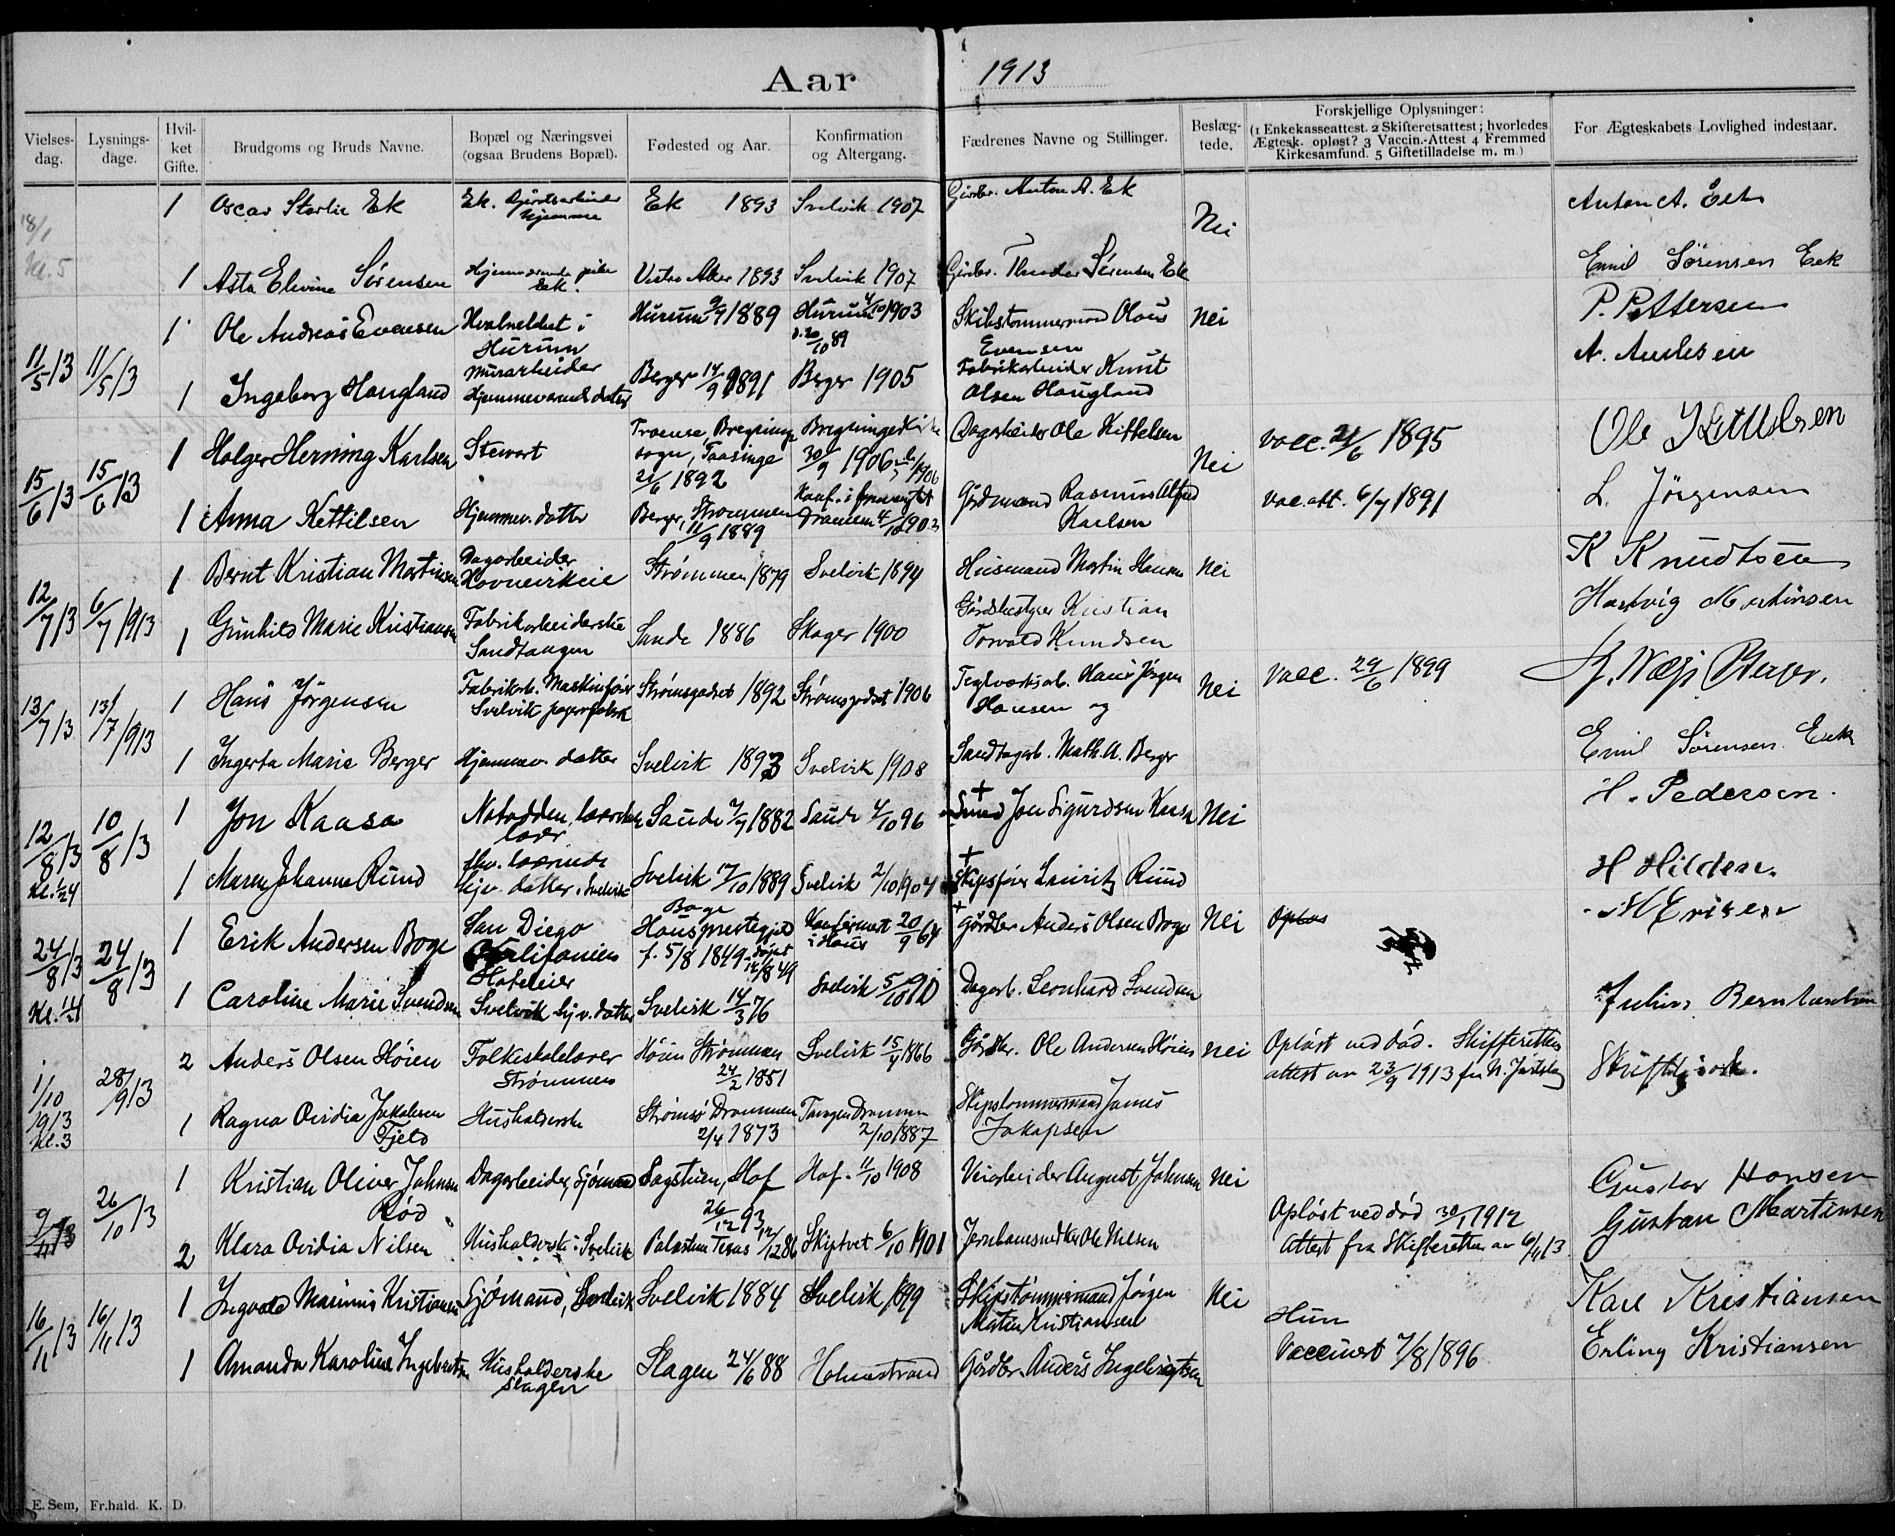 Aar 1913
Vielses-dag. Lysnings-dage. Hvil-ket Gifte. Brudgoms og Bruds Navne. Bopæl og Næringsvei (ogsaa Brudens Bopæl). Fødested og Aar. Konfirmation og Altergang. Fædrenes Navne og Stillinger. Beslæg-tede. Forskjellige Oplysninger: (1 Enkekasseattest. 2 Skifteretsattest; hvorledes Ægtesk. opløst? 3 Vaccin.-Attest 4 Fremmed Kirkesamfund. 5 Giftetilladelse m. m.) For Ægteskabets Lovlighed indestaar.
18/1 Kl. 5
1 Oscar Ek Ek. Hjemme Ek 1893 Svelvik 1907 Anton A. Ek Nei Anton A. Eek
1 Asta Elvine Sørensen Hjemmeværende pike Ek. Vestre Aker 1893 Svelvik 1907 Sørensen Ek Emil Sørensen Eek
11/5 13 11/5 13
1 Ole Andreas Evensen i Hurum Murarbeider Hurum 1889 Hurum 4/10 1903 Skibstømmermand Olaus Evensen Nei P. Pettersen
1 Ingeborg Haugland Hjemmeværende datter Berger 14/9 1891 Berger 1905 Fabrikarbeider Knut Olsen Haugland
15/6 13 15/6 13
1 Holger Herning Karlsen Stewart Troense, Bregninge sogn, Taasinge 21/6 1892 Bregninge Kirke 30/9 1906 Dagarbeider Ole Kittelsen Nei Vacc. 21/6 1895 Ole Kittilsen
1 Anna Kettilsen Hjemmev. datter Berger, Strømmen 11/9 1889 Konf. i Drammen 4/10 1903 Gårdmand Rasmus Alfred Karlsen Vac. att. 6/7 1891 L. Jörgensen
12/7 13 6/7 1913
1 Bernt Kristian Martinsen Dagarbeider Strømmen 1879 Svelvik 1894 Husmand Martin Hansen Nei K Knudtsen
1 Gunhild Marie Kristiansen Fabrikarbeiderske Sandtangen Sande 1886 Skoger 1900 Gårdbestyrer Kristian Torvald Knudsen Hartvig Martinsen
13/7 13 13/7 1913
1 Hans Jörgensen Fabrikarb. Maskinfører Svelvik papirfabrik Strømsgodset 1892 Strømsgodset 1906 Teglværksarb. Hans Jörgen Hansen og Nei Vacc. 29/6 1899
1 Ingerta Marie Berger Hjemmev. datter Svelvik 1893 Svelvik 1908 Math. A. Berger Emil Sørensen Eek
12/8 13 Kl. 1/2 4 10/8 13
1 Jon Kaasa Notodden, Saude 7/7 1882 Saude 4/10 96 + Smed Jon Sigurdsen Kaasa Nei H. Pedersen.
1 Maren Johanne Rund Hjv. datter. Svelvik Svelvik 17/10 1889 Svelvik 2/10 1904 + Skipsfører Lauritz Rund H Hilden.
24/8 13 24/8 13
1 Erik Andersen Boge San Diego Kalifornien Hoteleier Boge Hausprestegjeld f. 5/8 1849 døpt 12/8 49 Konfirmert i Haus 20/9 64 + Gårdbr Anders Olsen Boge Nei Opløs
1 Caroline Marie Svendsen Svelvik hjv. datter Svelvik 14/3 76 Svelvik 5/10 90 Dagarb. Leonhard Svendsen Julius Berntandsen
1/10 1913 Kl. 3 28/9 13
2 Anders Olsen Höien Folkeskolelærer Strømmen Höien Strømmen 24/2 1851 Svelvik 15/4 1866 Gårdbr. Ole Andersen Höien Nei Opløst ved død. Skifterettens attest av 23/9 1913 fra N. Jarlsberg
1 Ragna Ovidia Jakobsen Fjeld Husholderske Strømsø Drammen 2/4 1873 Tangen Drammen 2/10 1887 Skipstømmermand James Jakopsen
9/11 13 26/10 13
1 Kristian Oliver Johnsen Rød Dagarbeider, Sjømand Sagstuen, Hof 26/12 93 Hof. 11/10 1908 Veiarbeider August Johnsen Nei Gustav Hansen
2 Klara Ovidia Nilsen Husholderske i Svelvik Palestine Texas 12/12 86 Skiptvet 6/10 1901 Ole Nilsen Opløst ved død 30/1 1912 Attest fra Skifteretten av 6/11 13 Gustav Martinsen
16/11 13 16/11 13
1 Ingvald Marinus Kristiansen Sjømand, Svelvik Svelvik 1884 Svelvik 1899 Skipstømmermand Jörgen Martin Kristiansen Nei Karl Kristiansen
1 Amanda Karoline Ingebretsen Husholderske Slagen Slagen 24/6 88 Holmestrand Gårdbr. Anders Ingebrigtsen Hun Vaccinert 7/8 1896 Erling Kristiansen
E. Sem, Fr.hald. K. D.